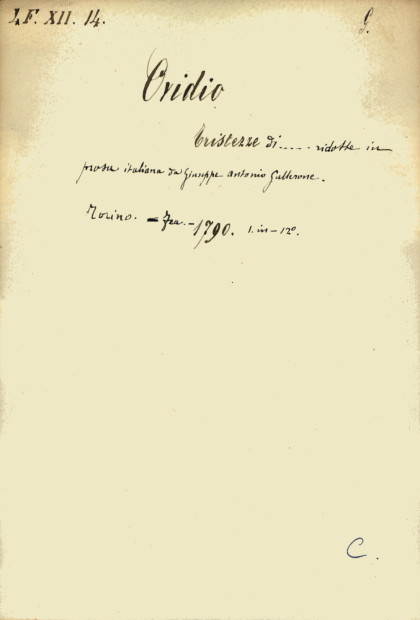 I.F. XII. 14.
G.
Ovidio
Tristezze di..... ridotte in
prosa italiana da Giuseppe Antonio Gallerone.
Torino. - Fea. - 1790. 1. in - 12º.
C.